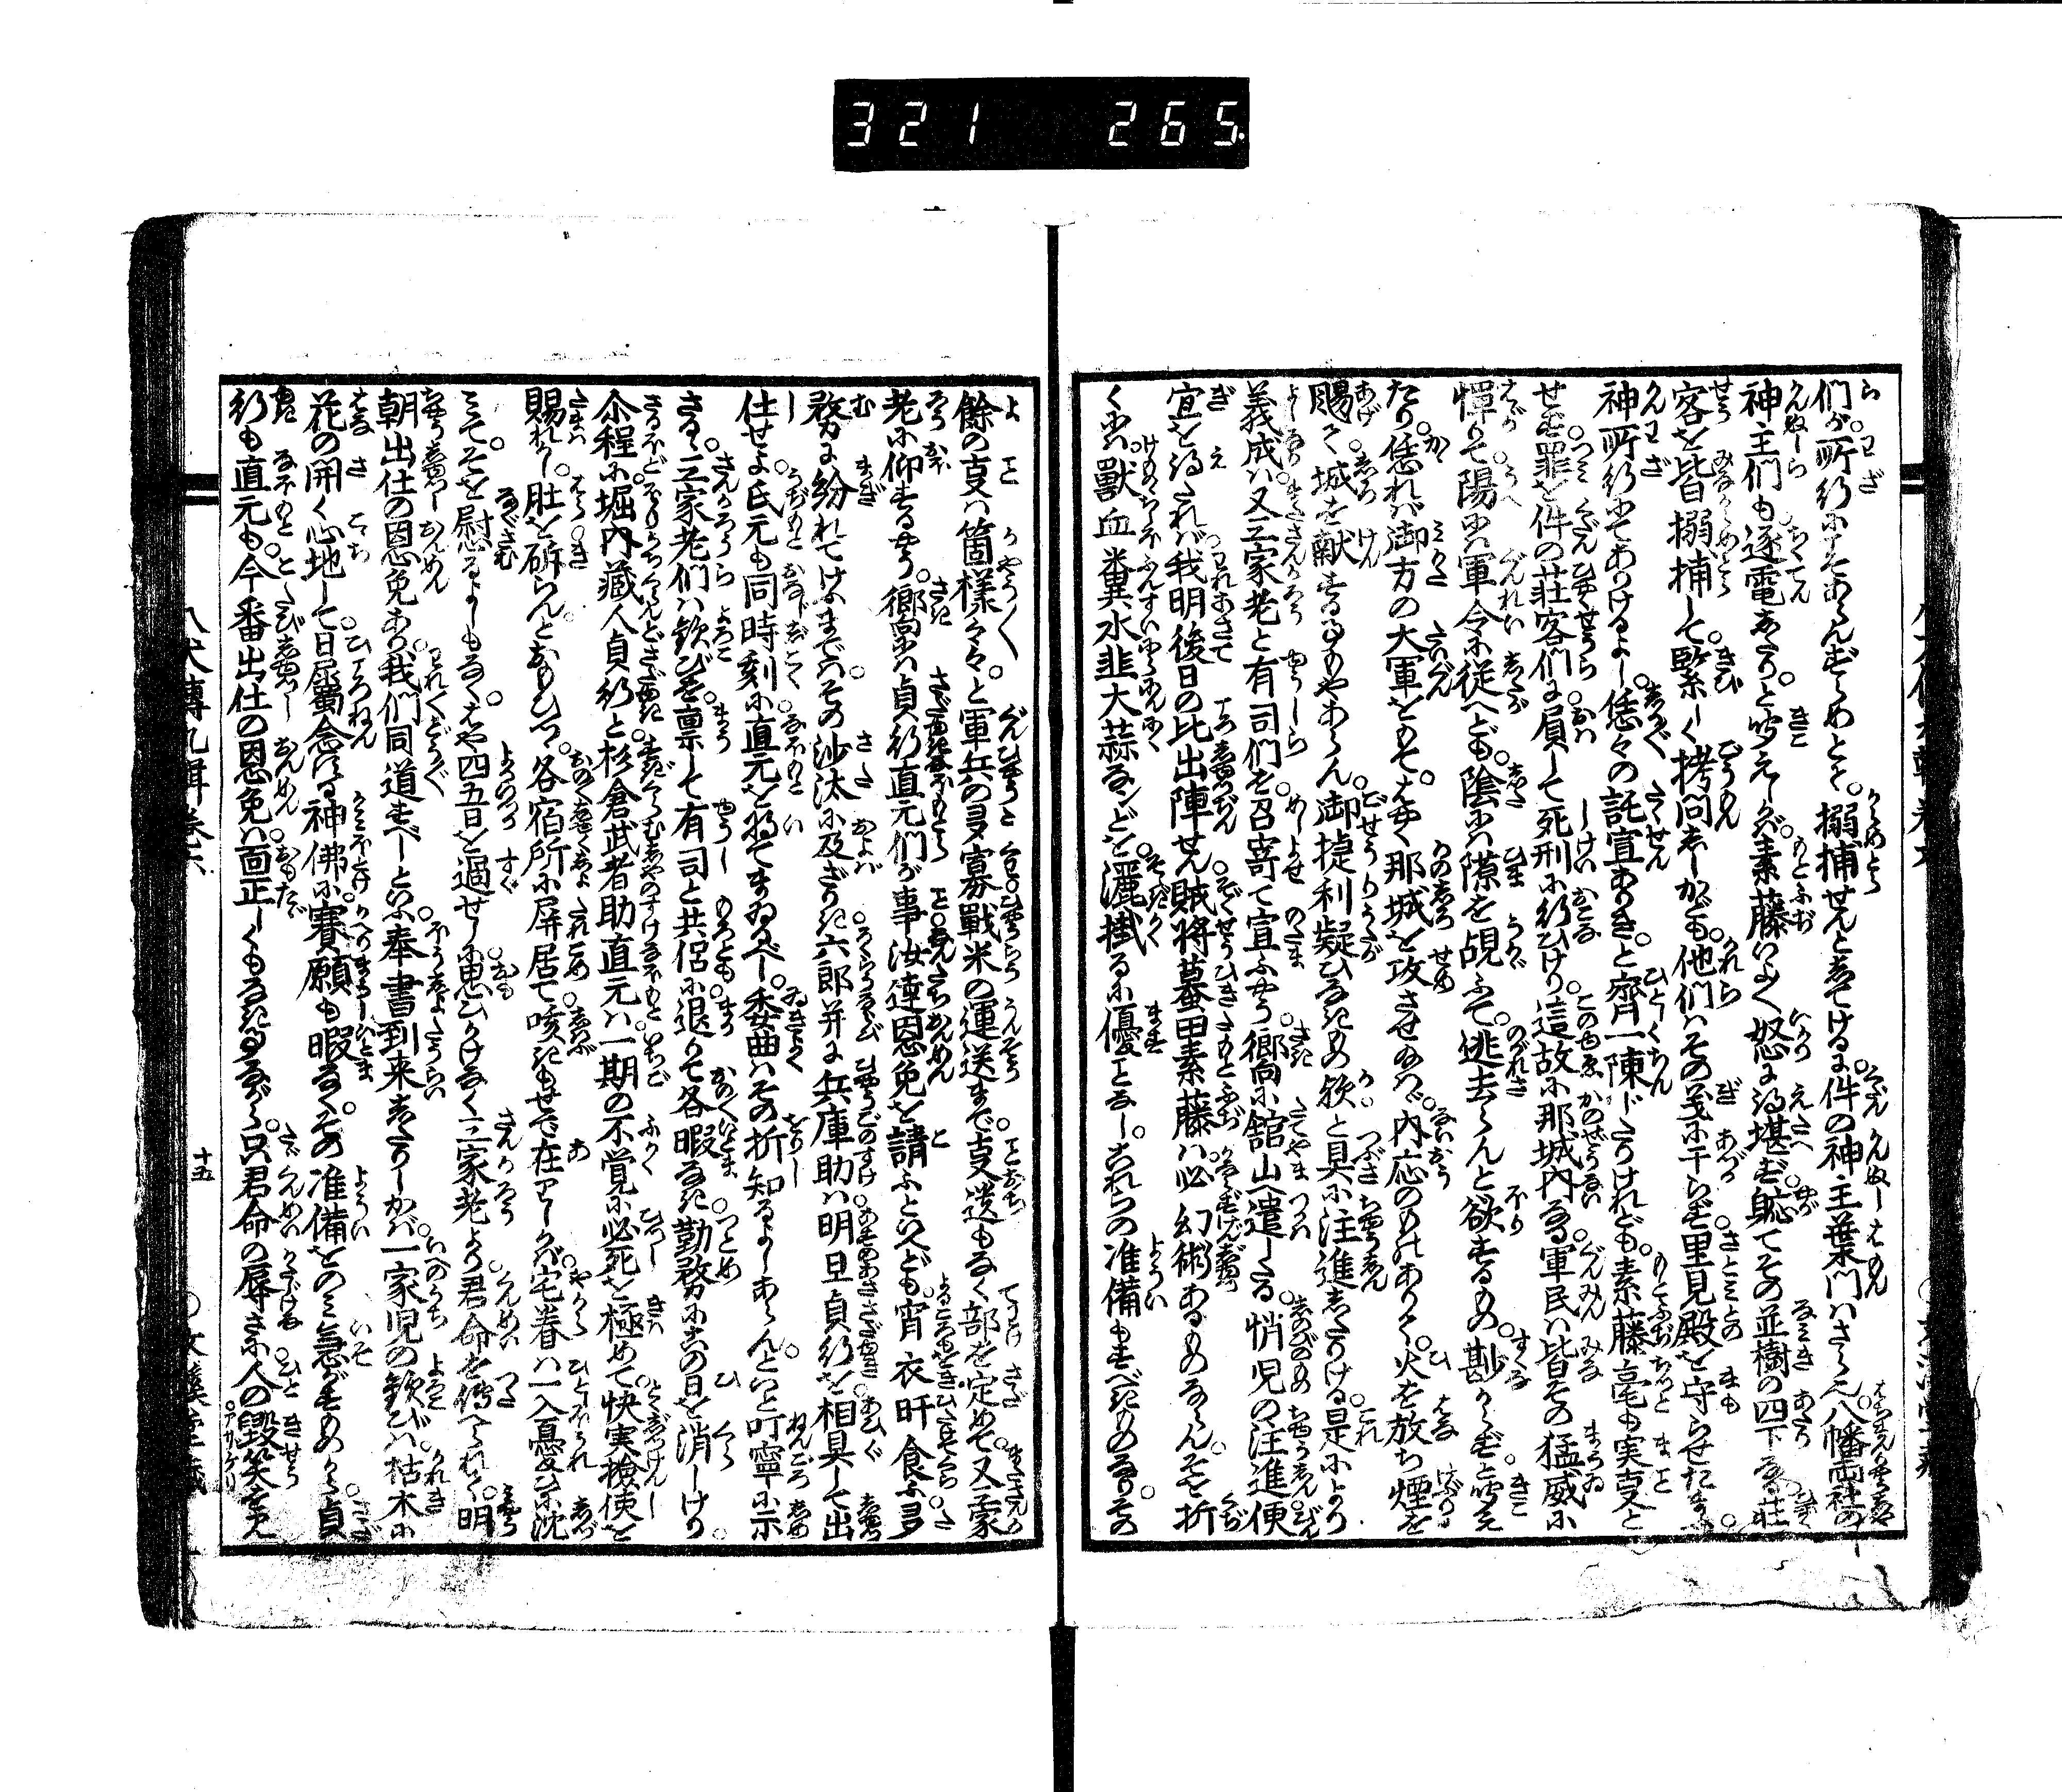 321 265
们が所行にこそあらんずらめとて搦捕せんとしてけるに件の神主葉門はさらん八幡両社の
神主们も逐電したりと聞えしかば素藤いよよく怒に得堪ず耻てその並樹の四下なる荘
客を皆搦捕して緊しく拷問せしかども他们はその義に干らず里見殿を守らせたまふ
神所行にてありけるよし恁々の託宣ありきと齊一陳じたりけれども素藤毫も実事と
せず罪を件の荘客們に負して死刑に行ひけり這故に那城内なる軍民は皆その猛威に
憚りて陽には軍令に従へども陰には隙を覘ふて逃去らんと欲するもの尠からずと聞え
たり恁れば御方の大軍をもてはやく那城を攻させ給はゞ内応のものありて火を放ち煙を
颺て城を献するものやあらん御捷利疑ひなきもの歟と具に注進したりける是により
義成は又三家老と有司們を召寄て宣ふやう嚮に舘山へ遣したる悄児の注進便
宜を得たれば我明後日の比出陣せん賊将蟇田素藤は必幻術あるものならんそを折
くには獣血糞水韮大蒜などを灑掛るに優ことなしこれらの准備もすべきものなりその
餘の事は箇様々々と軍兵の多寡戰米の運送まで事遺もなく部を定めて又三家
老に仰するやう嚮には貞行直元们が事汝達恩免を請ふといへども宵衣旰食に多
務に紛れてけふまではその沙汰に及ざりき六郎并に兵庫助は明旦貞行を相具して出
仕せよ氏元も同時刻に直元を将てまゐるべし委曲はその折知るよしあらんといと叮嚀に示
さるゝ三家老们は歓びを稟して有司と共侶に退りて各暇なき勤務にこの日を消しけり
尒程に堀内藏人貞行と杉倉武者助直元は一期の不覚に必死を極めて快実撿使を
賜れかし肚を斫らんとおもひつゝ各宿所に屏居て咳きもせで在りしかば宅眷は一入憂ひに沈
みてそを慰るよしもなくはや四五日を過せしに思ひかけなく三家老より君命を傳へられて明
朝出仕の恩免あり我們同道すべしといふ奉書到来したりしかば一家児の歓びは枯木に
花の開く心地して日屬念ずる神佛に賽願も暇なくその准備をのみ急がすめるから貞
行も直元も今番出仕の恩免は面正しくもなきものながら只君命の辱さに人の毀笑を見
八犬傳九輯巻六
十五